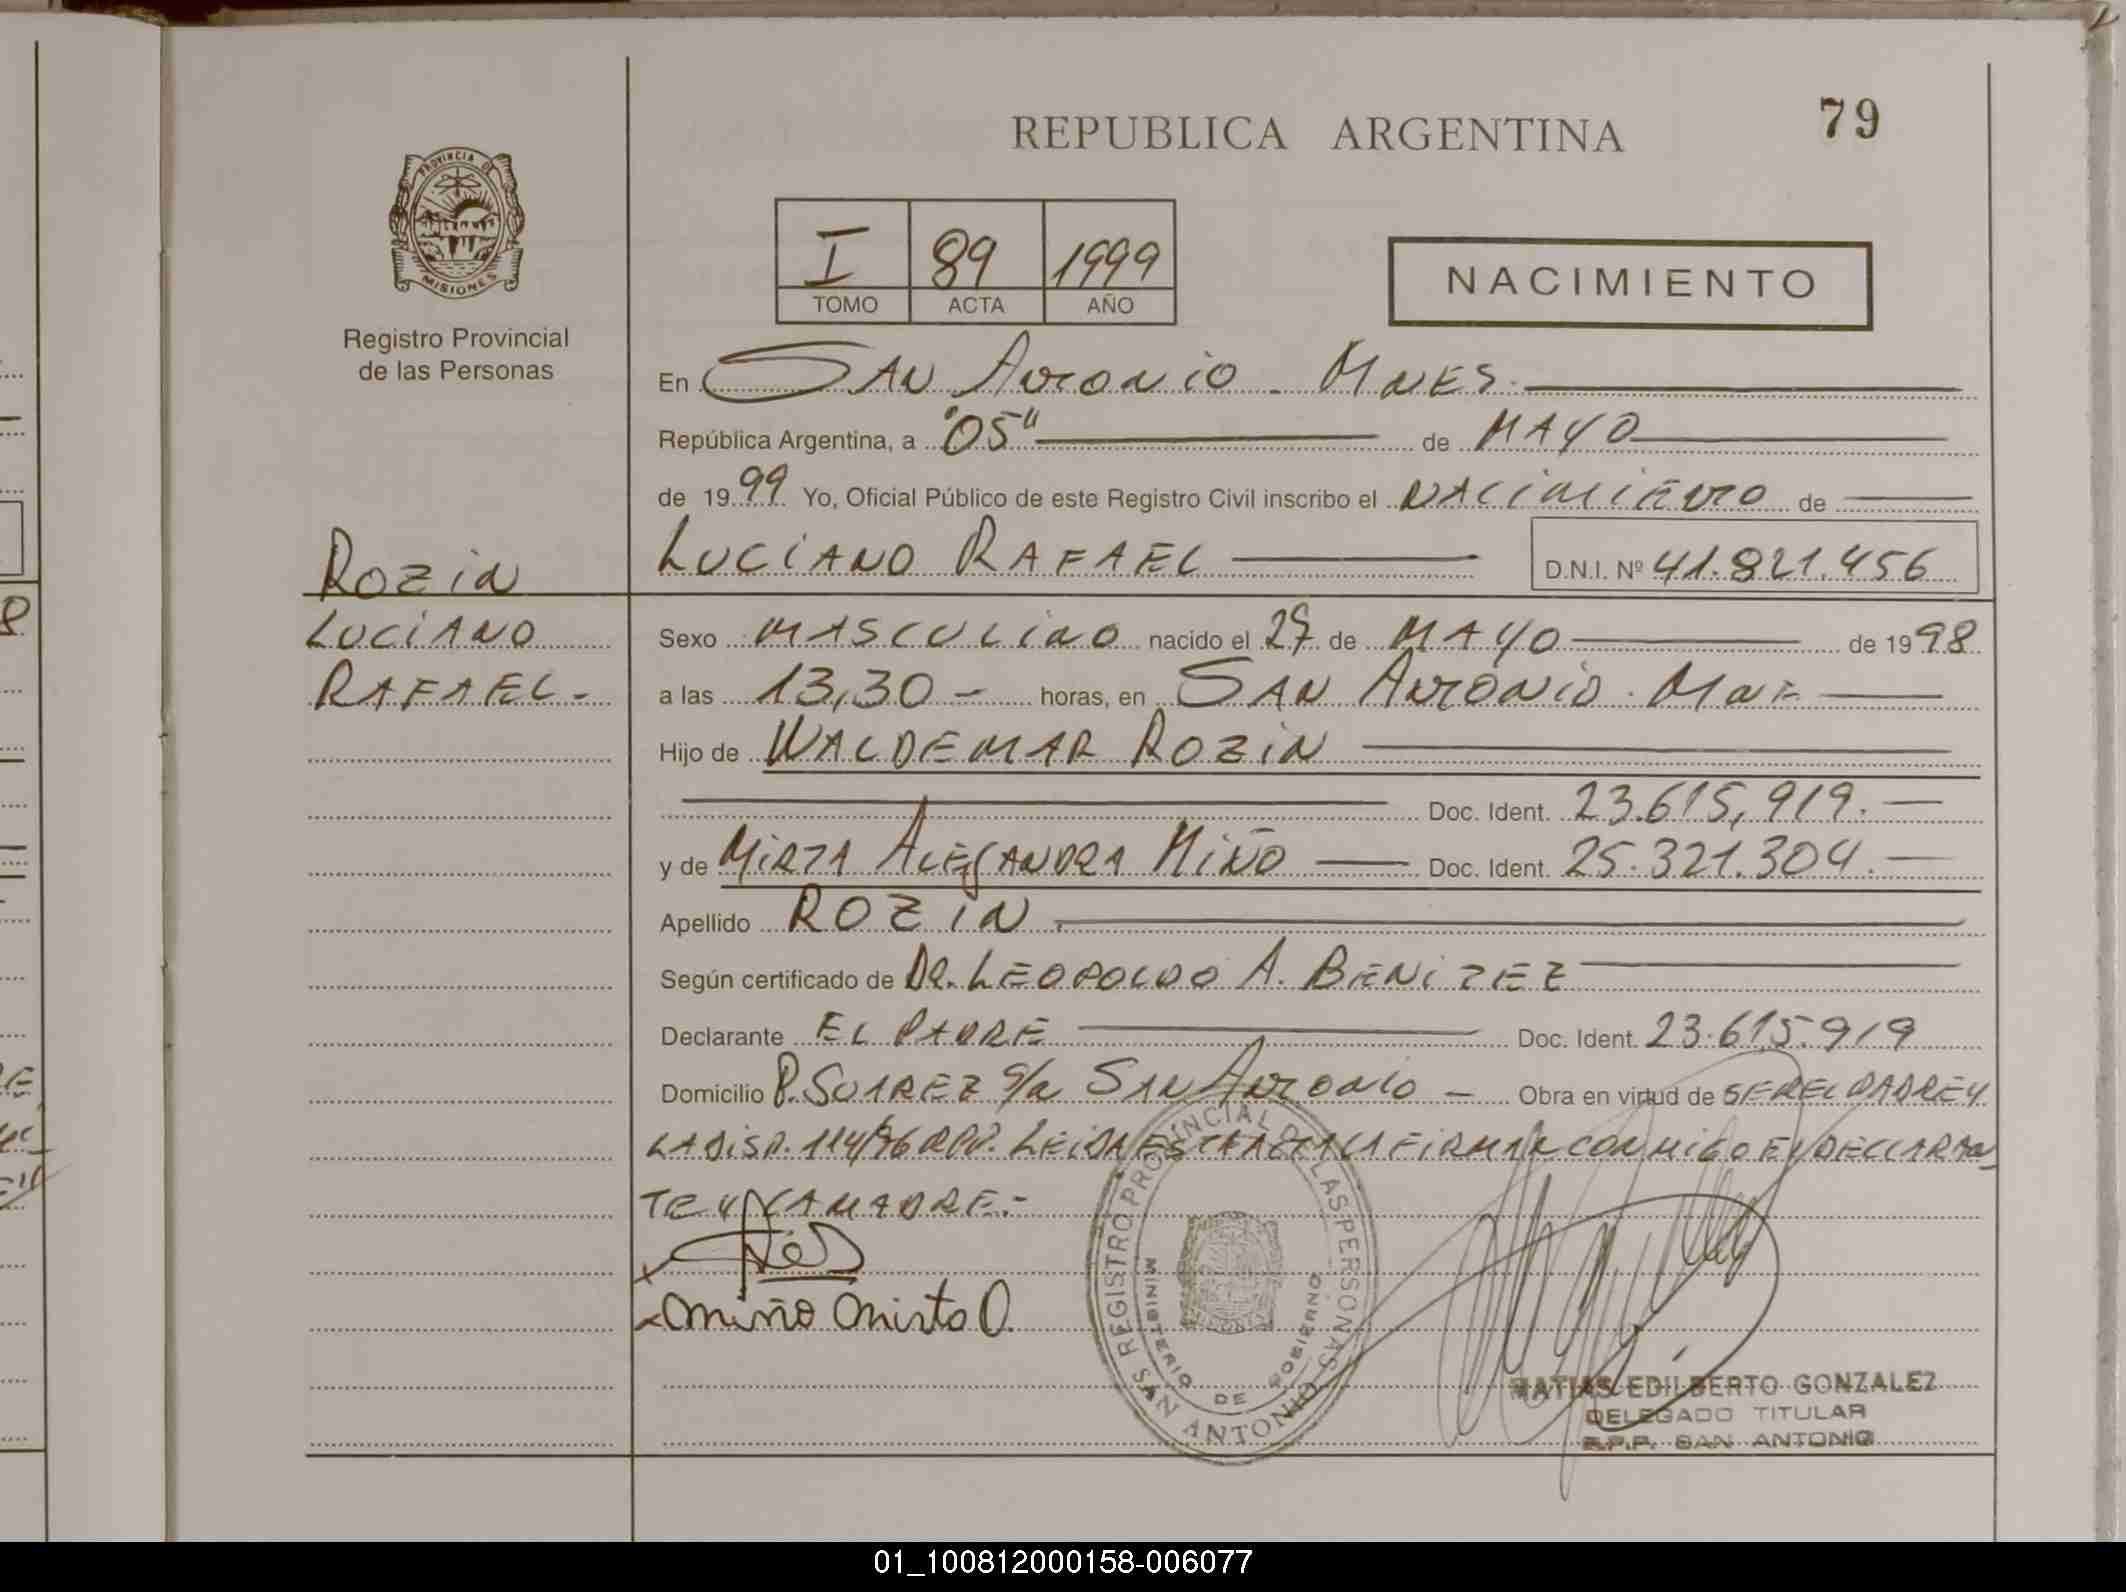 79
REPUBLICA ARGENTINA
PROVINCIA DE
MISIONES
Registro Provincial
de las Personas
I 89 1999
TOMO ACTA AÑO
NACIMIENTO
En SAN ANTONIO - MNES.
República Argentina, a "05" de MAYO
de 1999 Yo, Oficial Público de este Registro Civil inscribo el NACIMIENTO de
ROZIN
LUCIANO RAFAEL D.N.I. Nº 41.821.456
LUCIANO
RAFAEL -
Sexo MASCULINO nacido el de MAYO de 1998
a las 13,30 - horas, en SAN ANTONIO . MNE
Hijo de WALDEMAR ROZIN
Doc. Ident. 23.615,919.
y de MIRTA ALEJANDRA MIÑO Doc. Ident. 25.321.304.
Apellido ROZIN
Según certificado de DR. LEOPOLDO A. BENITEZ
Declarante EL PADRE Doc. Ident. 23.615.919
Domicilio P. SUAREZ S/N SAN ANTONIO - Obra en virtud de SER EL PADRE Y
LA DISP. 114/96 RPP. LEIDA ESTA ACTA LA FIRMAN CONMIGO EL DECLARAN
TE Y LA MADRE.-
Miño Mirta A.
REGISTRO PROVINCIAL DE LAS PERSONAS
MINISTERIO DE GOBIERNO
SAN ANTONIO
MATIAS EDILBERTO GONZALEZ
DELEGADO TITULAR
R.P.P. SAN ANTONIO
01_100812000158-006077